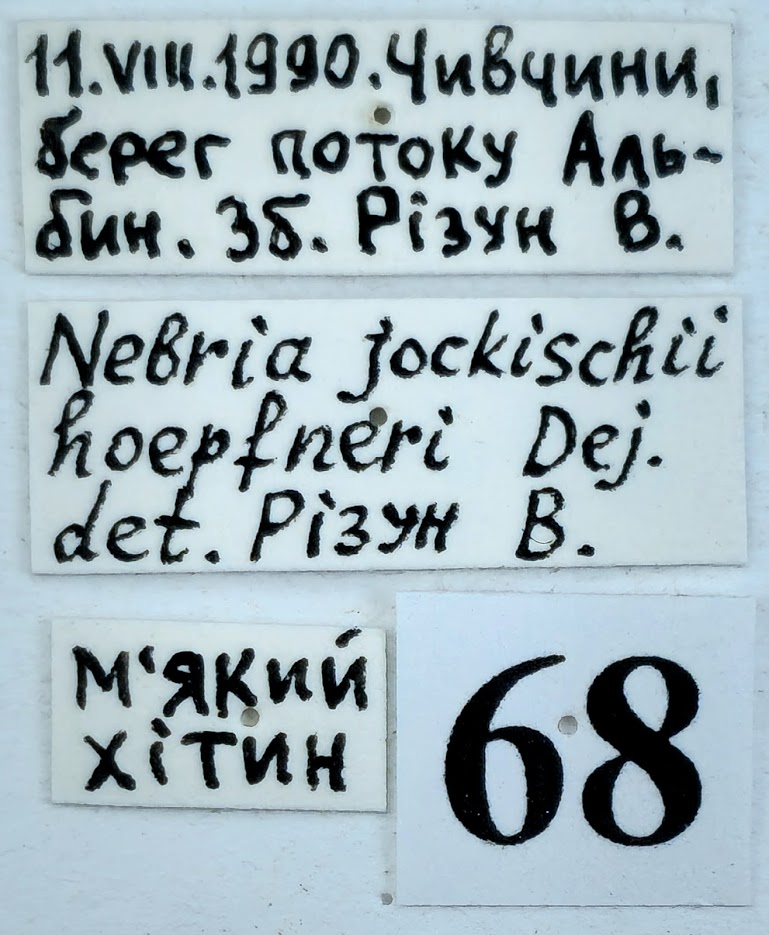 11.VIII.1990. Чивчини,
берег потоку Аль-
бин. Зб. Різун В.
Nebria jockischii
hoepfneri Dej.
det. Різун В.
м'який
хітин
68